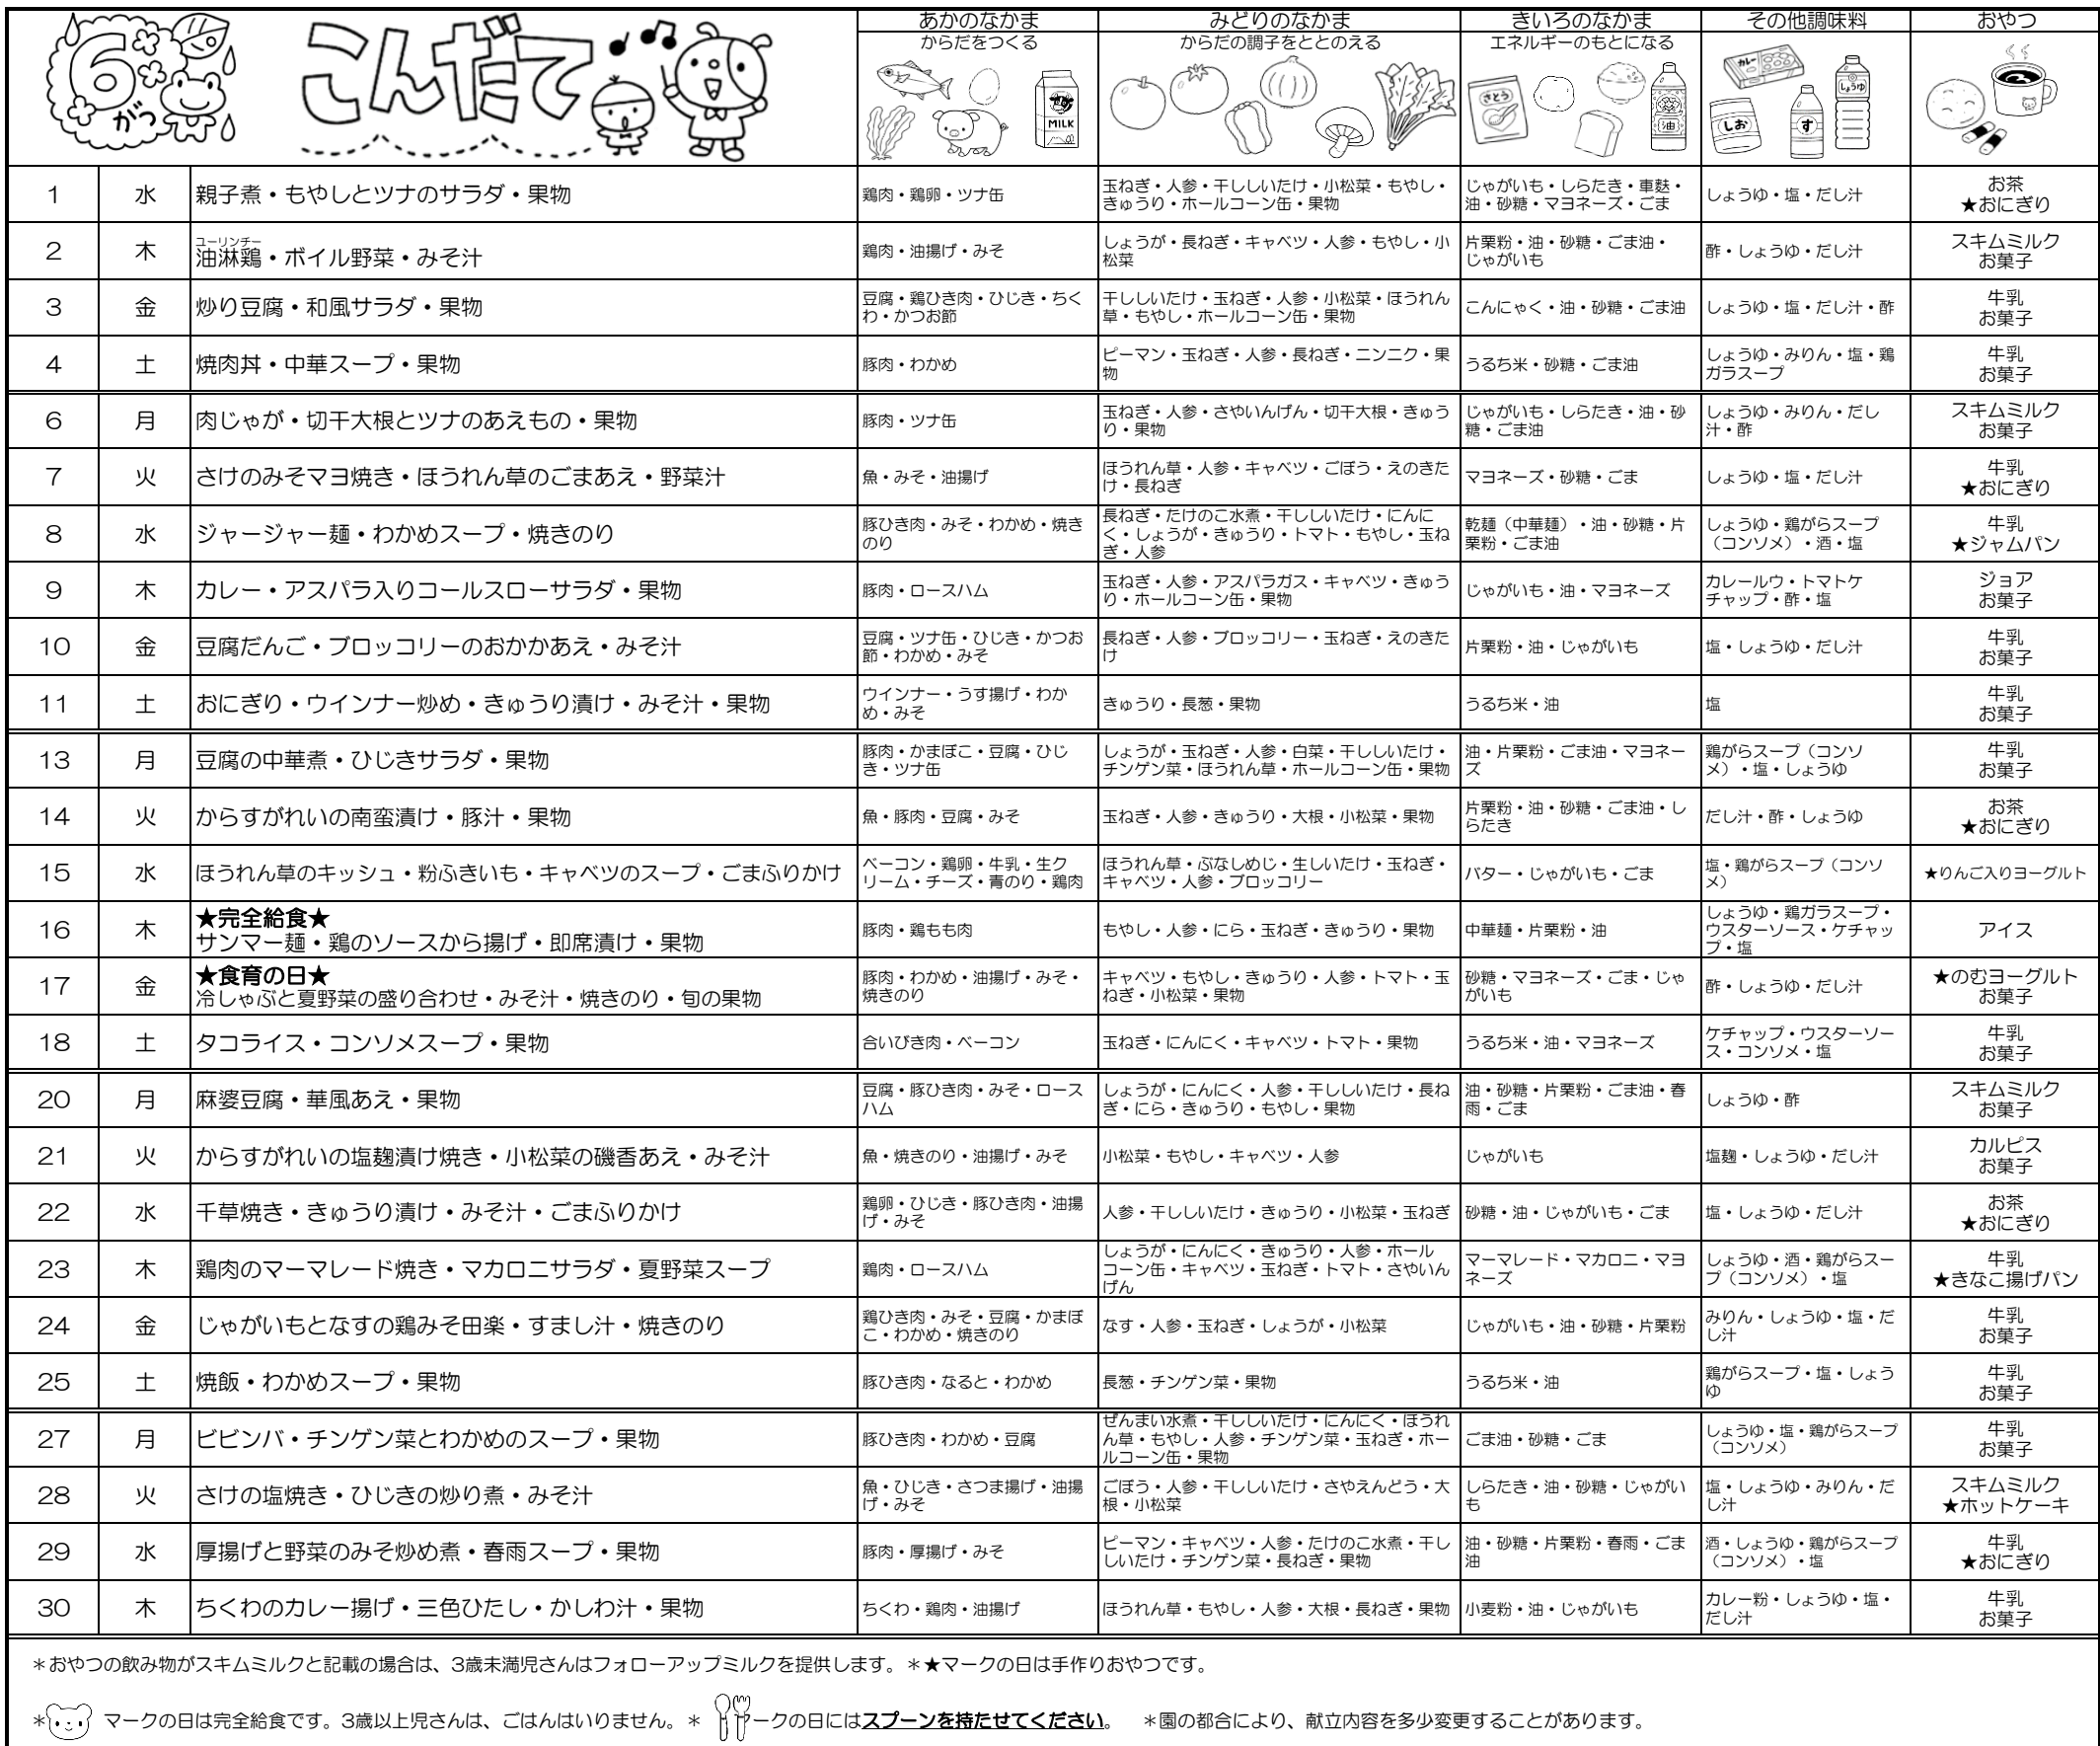 6がつ
こんだて
あかのなかま
みどりのなかま
きいろのなかま
その他調味料
おやつ
からだをつくる
からだの調子をととのえる
エネルギーのもとになる
MILK
さとう
油
カレー
しお
す
しょうゆ
1 水 親子煮・もやしとツナのサラダ・果物
鶏肉・鶏卵・ツナ缶
玉ねぎ・人参・干ししいたけ・小松菜・もやし・
きゅうり・ホールコーン缶・果物
じゃがいも・しらたき・車麩・
油・砂糖・マヨネーズ・ごま
しょうゆ・塩・だし汁
お茶
★おにぎり
ユーリンチー
2 木 油淋鶏・ボイル野菜・みそ汁
鶏肉・油揚げ・みそ
しょうが・長ねぎ・キャベツ・人参・もやし・小
松菜
片栗粉・油・砂糖・ごま油・
じゃがいも
酢・しょうゆ・だし汁
スキムミルク
お菓子
3 金 炒り豆腐・和風サラダ・果物
豆腐・鶏ひき肉・ひじき・ちく
わ・かつお節
干ししいたけ・玉ねぎ・人参・小松菜・ほうれん
草・もやし・ホールコーン缶・果物
こんにゃく・油・砂糖・ごま油
しょうゆ・塩・だし汁・酢
牛乳
お菓子
4 土 焼肉丼・中華スープ・果物
豚肉・わかめ
ピーマン・玉ねぎ・人参・長ねぎ・ニンニク・果
物
うるち米・砂糖・ごま油
しょうゆ・みりん・塩・鶏
ガラスープ
牛乳
お菓子
6 月 肉じゃが・切干大根とツナのあえもの・果物
豚肉・ツナ缶
玉ねぎ・人参・さやいんげん・切干大根・きゅう
り・果物
じゃがいも・しらたき・油・砂
糖・ごま油
しょうゆ・みりん・だし
汁・酢
スキムミルク
お菓子
7 火 さけのみそマヨ焼き・ほうれん草のごまあえ・野菜汁
魚・みそ・油揚げ
ほうれん草・人参・キャベツ・ごぼう・えのきた
け・長ねぎ
マヨネーズ・砂糖・ごま
しょうゆ・塩・だし汁
牛乳
★おにぎり
8 水 ジャージャー麺・わかめスープ・焼きのり
豚ひき肉・みそ・わかめ・焼き
のり
長ねぎ・たけのこ水煮・干ししいたけ・にんに
く・しょうが・きゅうり・トマト・もやし・玉ね
ぎ・人参
乾麺（中華麺）・油・砂糖・片
栗粉・ごま油
しょうゆ・鶏がらスープ
（コンソメ）・酒・塩
牛乳
★ジャムパン
9 木 カレー・アスパラ入りコールスローサラダ・果物
豚肉・ロースハム
玉ねぎ・人参・アスパラガス・キャベツ・きゅう
り・ホールコーン缶・果物
じゃがいも・油・マヨネーズ
カレールウ・トマトケ
チャップ・酢・塩
ジョア
お菓子
10 金 豆腐だんご・ブロッコリーのおかかあえ・みそ汁
豆腐・ツナ缶・ひじき・かつお
節・わかめ・みそ
長ねぎ・人参・ブロッコリー・玉ねぎ・えのきた
け
片栗粉・油・じゃがいも
塩・しょうゆ・だし汁
牛乳
お菓子
11 土 おにぎり・ウインナー炒め・きゅうり漬け・みそ汁・果物
ウインナー・うす揚げ・わか
め・みそ
きゅうり・長葱・果物
うるち米・油
塩
牛乳
お菓子
13 月 豆腐の中華煮・ひじきサラダ・果物
豚肉・かまぼこ・豆腐・ひじ
き・ツナ缶
しょうが・玉ねぎ・人参・白菜・干ししいたけ・
チンゲン菜・ほうれん草・ホールコーン缶・果物
油・片栗粉・ごま油・マヨネー
ズ
鶏がらスープ（コンソ
メ）・塩・しょうゆ
牛乳
お菓子
14 火 からすがれいの南蛮漬け・豚汁・果物
魚・豚肉・豆腐・みそ
玉ねぎ・人参・きゅうり・大根・小松菜・果物
片栗粉・油・砂糖・ごま油・し
らたき
だし汁・酢・しょうゆ
お茶
★おにぎり
15 水 ほうれん草のキッシュ・粉ふきいも・キャベツのスープ・ごまふりかけ
ベーコン・鶏卵・牛乳・生ク
リーム・チーズ・青のり・鶏肉
ほうれん草・ぶなしめじ・生しいたけ・玉ねぎ・
キャベツ・人参・ブロッコリー
バター・じゃがいも・ごま
塩・鶏がらスープ（コンソ
メ）
★りんご入りヨーグルト
16 木 ★完全給食★
サンマー麺・鶏のソースから揚げ・即席漬け・果物
豚肉・鶏もも肉
もやし・人参・にら・玉ねぎ・きゅうり・果物
中華麺・片栗粉・油
しょうゆ・鶏ガラスープ・
ウスターソース・ケチャッ
プ・塩
アイス
17 金 ★食育の日★
冷しゃぶと夏野菜の盛り合わせ・みそ汁・焼きのり・旬の果物
豚肉・わかめ・油揚げ・みそ・
焼きのり
キャベツ・もやし・きゅうり・人参・トマト・玉
ねぎ・小松菜・果物
砂糖・マヨネーズ・ごま・じゃ
がいも
酢・しょうゆ・だし汁
★のむヨーグルト
お菓子
18 土 タコライス・コンソメスープ・果物
合いびき肉・ベーコン
玉ねぎ・にんにく・キャベツ・トマト・果物
うるち米・油・マヨネーズ
ケチャップ・ウスターソー
ス・コンソメ・塩
牛乳
お菓子
20 月 麻婆豆腐・華風あえ・果物
豆腐・豚ひき肉・みそ・ロース
ハム
しょうが・にんにく・人参・干ししいたけ・長ね
ぎ・にら・きゅうり・もやし・果物
油・砂糖・片栗粉・ごま油・春
雨・ごま
しょうゆ・酢
スキムミルク
お菓子
21 火 からすがれいの塩麹漬け焼き・小松菜の磯香あえ・みそ汁
魚・焼きのり・油揚げ・みそ
小松菜・もやし・キャベツ・人参
じゃがいも
塩麹・しょうゆ・だし汁
カルピス
お菓子
22 水 千草焼き・きゅうり漬け・みそ汁・ごまふりかけ
鶏卵・ひじき・豚ひき肉・油揚
げ・みそ
人参・干ししいたけ・きゅうり・小松菜・玉ねぎ
砂糖・油・じゃがいも・ごま
塩・しょうゆ・だし汁
お茶
★おにぎり
23 木 鶏肉のマーマレード焼き・マカロニサラダ・夏野菜スープ
鶏肉・ロースハム
しょうが・にんにく・きゅうり・人参・ホール
コーン缶・キャベツ・玉ねぎ・トマト・さやいん
げん
マーマレード・マカロニ・マヨ
ネーズ
しょうゆ・酒・鶏がらスー
プ（コンソメ）・塩
牛乳
★きなこ揚げパン
24 金 じゃがいもとなすの鶏みそ田楽・すまし汁・焼きのり
鶏ひき肉・みそ・豆腐・かまぼ
こ・わかめ・焼きのり
なす・人参・玉ねぎ・しょうが・小松菜
じゃがいも・油・砂糖・片栗粉
みりん・しょうゆ・塩・だ
し汁
牛乳
お菓子
25 土 焼飯・わかめスープ・果物
豚ひき肉・なると・わかめ
長葱・チンゲン菜・果物
うるち米・油
鶏がらスープ・塩・しょう
ゆ
牛乳
お菓子
27 月 ビビンバ・チンゲン菜とわかめのスープ・果物
豚ひき肉・わかめ・豆腐
ぜんまい水煮・干ししいたけ・にんにく・ほうれ
ん草・もやし・人参・チンゲン菜・玉ねぎ・ホー
ルコーン缶・果物
ごま油・砂糖・ごま
しょうゆ・塩・鶏がらスープ
（コンソメ）
牛乳
お菓子
28 火 さけの塩焼き・ひじきの炒り煮・みそ汁
魚・ひじき・さつま揚げ・油揚
げ・みそ
ごぼう・人参・干ししいたけ・さやえんどう・大
根・小松菜
しらたき・油・砂糖・じゃがい
も
塩・しょうゆ・みりん・だ
し汁
スキムミルク
★ホットケーキ
29 水 厚揚げと野菜のみそ炒め煮・春雨スープ・果物
豚肉・厚揚げ・みそ
ピーマン・キャベツ・人参・たけのこ水煮・干し
しいたけ・チンゲン菜・長ねぎ・果物
油・砂糖・片栗粉・春雨・ごま
油
酒・しょうゆ・鶏がらスープ
（コンソメ）・塩
牛乳
★おにぎり
30 木 ちくわのカレー揚げ・三色ひたし・かしわ汁・果物
ちくわ・鶏肉・油揚げ
ほうれん草・もやし・人参・大根・長ねぎ・果物
小麦粉・油・じゃがいも
カレー粉・しょうゆ・塩・
だし汁
牛乳
お菓子
＊おやつの飲み物がスキムミルクと記載の場合は、3歳未満児さんはフォローアップミルクを提供します。＊★マークの日は手作りおやつです。
＊ マークの日は完全給食です。3歳以上児さんは、ごはんはいりません。＊ マークの日にはスプーンを持たせてください。 ＊園の都合により、献立内容を多少変更することがあります。